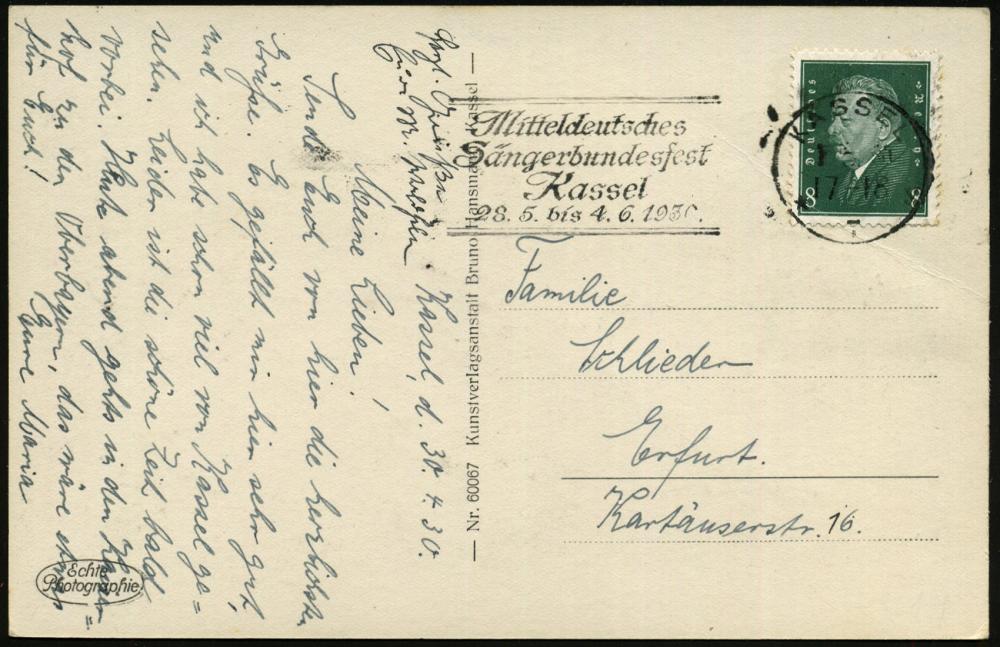 Kassel, d. 30. 4. 30.
Meine Lieben!
Sende Euch von hier die herzlichsten
Grüße. Es gefällt mir hier sehr gut,
und ich habe schon viel von Kassel ge=
sehen. Leider ist die schöne Zeit bald
vorbei. Heute abend gehts in den
hof zu den Oberbayern, das wäre etwas
für Euch!
Eure Maria
Hzl. Grüße
Echte
Photographie
— Nr. 60067 Kunstverlagsanstalt Bruno Hansmann, Kassel —
Mitteldeutsches
Sängerbundesfest
Kassel
28. 5. bis 4. 6. 1930.
Deutsches
Reich
8
8
KASSEL
17-18
Familie
Schlieder
Erfurt.
Kartäuserstr. 16.